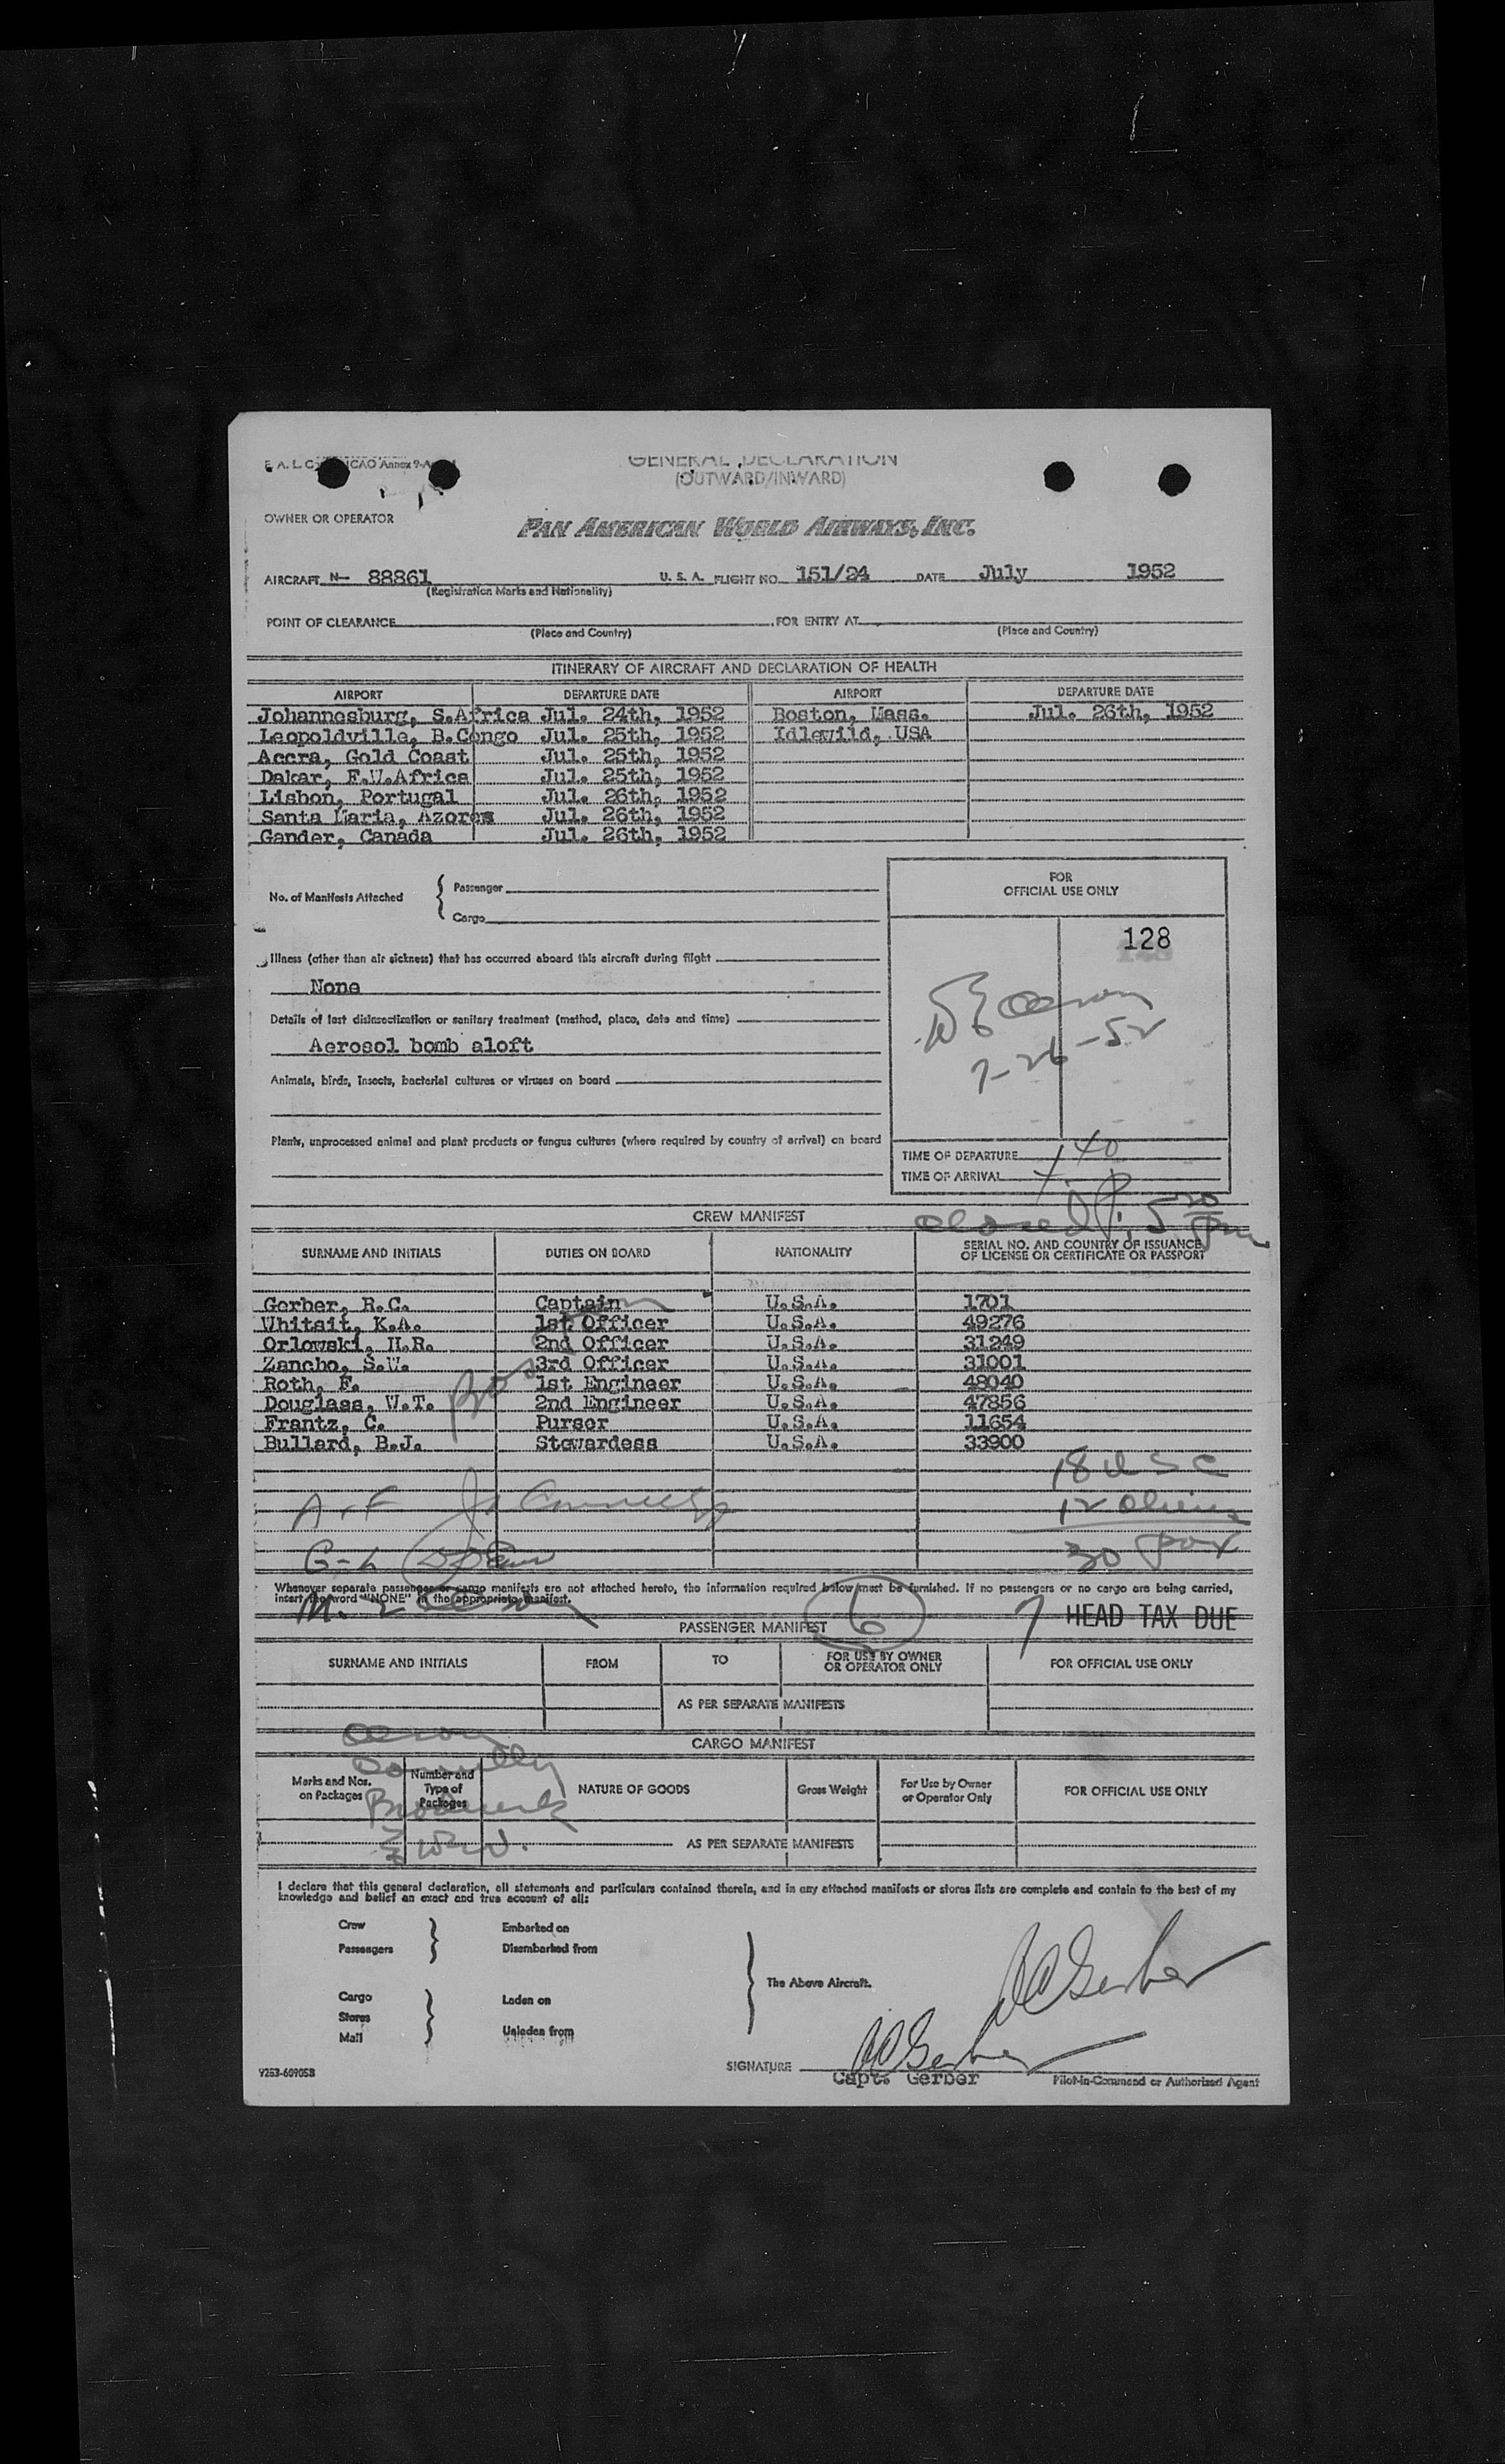 GENERAL DECLARATION
(OUTWARD/INWARD)
OWNER OR OPERATOR PAN AMERICAN WORLD AIRWAYS, INC.
AIRCRAFT N- 88861 U. S. A. FLIGHT NO. 151/24 DATE July 1952
(Registration Marks and Nationality)
POINT OF CLEARANCE FOR ENTRY AT
(Place and Country) (Place and Country)
ITINERARY OF AIRCRAFT AND DECLARATION OF HEALTH
AIRPORT DEPARTURE DATE AIRPORT DEPARTURE DATE
Johannesburg, S.Africa Jul. 24th, 1952 Boston, Mass. Jul. 26th, 1952
Leopoldville, B.Congo Jul. 25th, 1952 Idlewild, USA
Accra, Gold Coast Jul. 25th, 1952
Dakar, F.W.Africa Jul. 25th, 1952
Lisbon, Portugal Jul. 26th, 1952
Santa Maria, Azores Jul. 26th, 1952
Gander, Canada Jul. 26th, 1952
No. of Manifests Attached { Passenger
Cargo
FOR
OFFICIAL USE ONLY
128
7-26-52
Illness (other than air sickness) that has occurred aboard this aircraft during flight
None
Details of last disinsectization or sanitary treatment (method, place, date and time)
Aerosol bomb aloft
Animals, birds, insects, bacterial cultures or viruses on board
Plants, unprocessed animal and plant products or fungus cultures (where required by country of arrival) on board
TIME OF DEPARTURE
TIME OF ARRIVAL
CREW MANIFEST closed
SURNAME AND INITIALS DUTIES ON BOARD NATIONALITY SERIAL NO. AND COUNTRY OF ISSUANCE
OF LICENSE OR CERTIFICATE OR PASSPORT
Gerber, R.C. Captain U.S.A. 1701
Whitsit, K.A. 1st Officer U.S.A. 49276
Orlowski, H.R. 2nd Officer U.S.A. 31249
Zancho, S.W. 3rd Officer U.S.A. 31001
Roth, F. 1st Engineer U.S.A. 48040
Douglass, W.T. 2nd Engineer U.S.A. 47856
Frantz, C. Purser U.S.A. 11654
Bullard, B.J. Stewardess U.S.A. 33900
Boston
18 USC
A-F
12 aliens
G-L
30 pax
Whenever separate passenger or cargo manifests are not attached hereto, the information required below must be furnished. If no passengers or no cargo are being carried,
insert the word "NONE" in the appropriate manifest.
M-Z
6
7 HEAD TAX DUE
PASSENGER MANIFEST
SURNAME AND INITIALS FROM TO FOR USE BY OWNER
OR OPERATOR ONLY FOR OFFICIAL USE ONLY
AS PER SEPARATE MANIFESTS
CARGO MANIFEST
Marks and Nos.
on Packages Number and
Type of
Packages NATURE OF GOODS Gross Weight For Use by Owner
or Operator Only FOR OFFICIAL USE ONLY
AS PER SEPARATE MANIFESTS
I declare that this general declaration, all statements and particulars contained therein, and in any attached manifests or stores lists are complete and contain to the best of my
knowledge and belief an exact and true account of all:
Crew Embarked on
Passengers Disembarked from
The Above Aircraft.
Cargo Laden on
Stores
Mail Unladen from
RCGerber
SIGNATURE RCGerber
Capt. Gerber Pilot-in-Command or Authorized Agent
9253-60905B